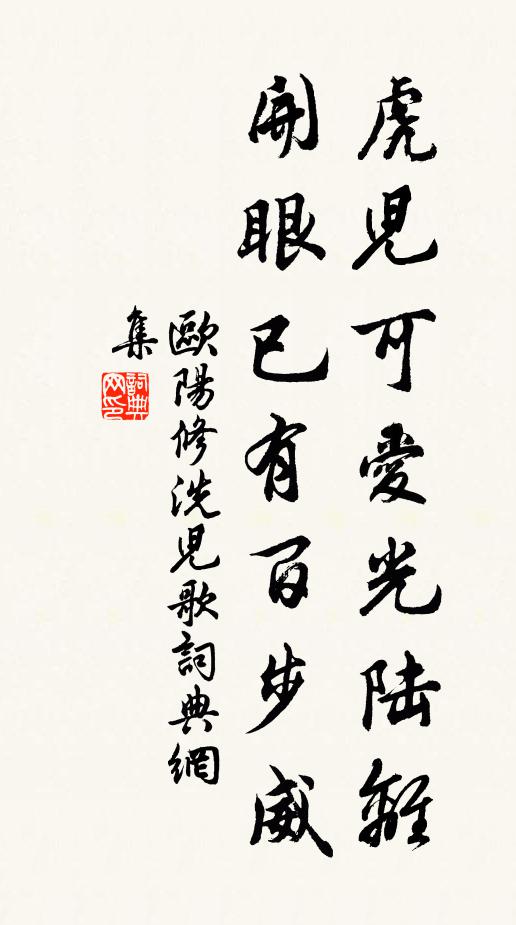 虎児可愛光陸離
開眼已有百步威
歐陽修洗児歌詞典網
集
詞典网印